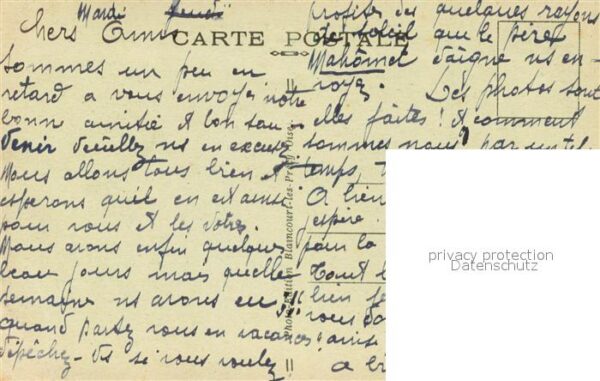 Mardi Jeudi
Chers Amis
CARTE POSTALE
Sommes un peu en
retard a vous envoyer notre
bonne amitié et bon sou-
venir veuillez ns en excuser
Nous allons tous bien et
esperons qu'il en est aussi
pour vous et les votres.
Nous avons enfin quelques
beau jours mais quelle
semaine ns avons eu
quand partez vous en vacances
dépéchez-vs si vous voulez
profiter des quelques rayons
de soleil que le père
Mahomet daigne ns en-
royez.
Les photos sont
elles faites! et comment
sommes nous par un
temps,
A bien
j'espère
pour la
Tout
bien
vous
amis
a bi
Photo-Edition Blaincourt-les-Précy Oise.
privacy protection
Datenschutz